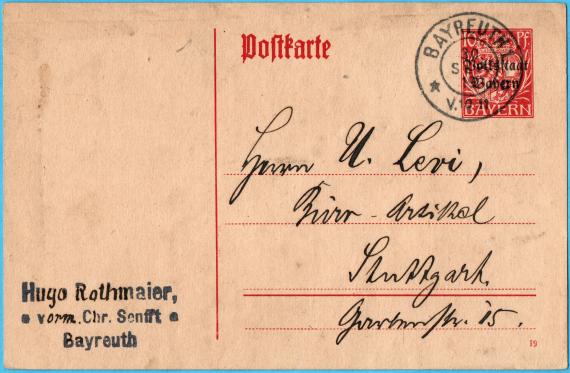 Postkarte
BAYREUTH 1
10 Pf
Volksstaat
Bayern
BAYERN
Herrn U. Levi,
Büro-Artikel
Stuttgart.
Gartenstr. 15.
Hugo Rothmaier,
vorm. Chr. Senfft
Bayreuth
19